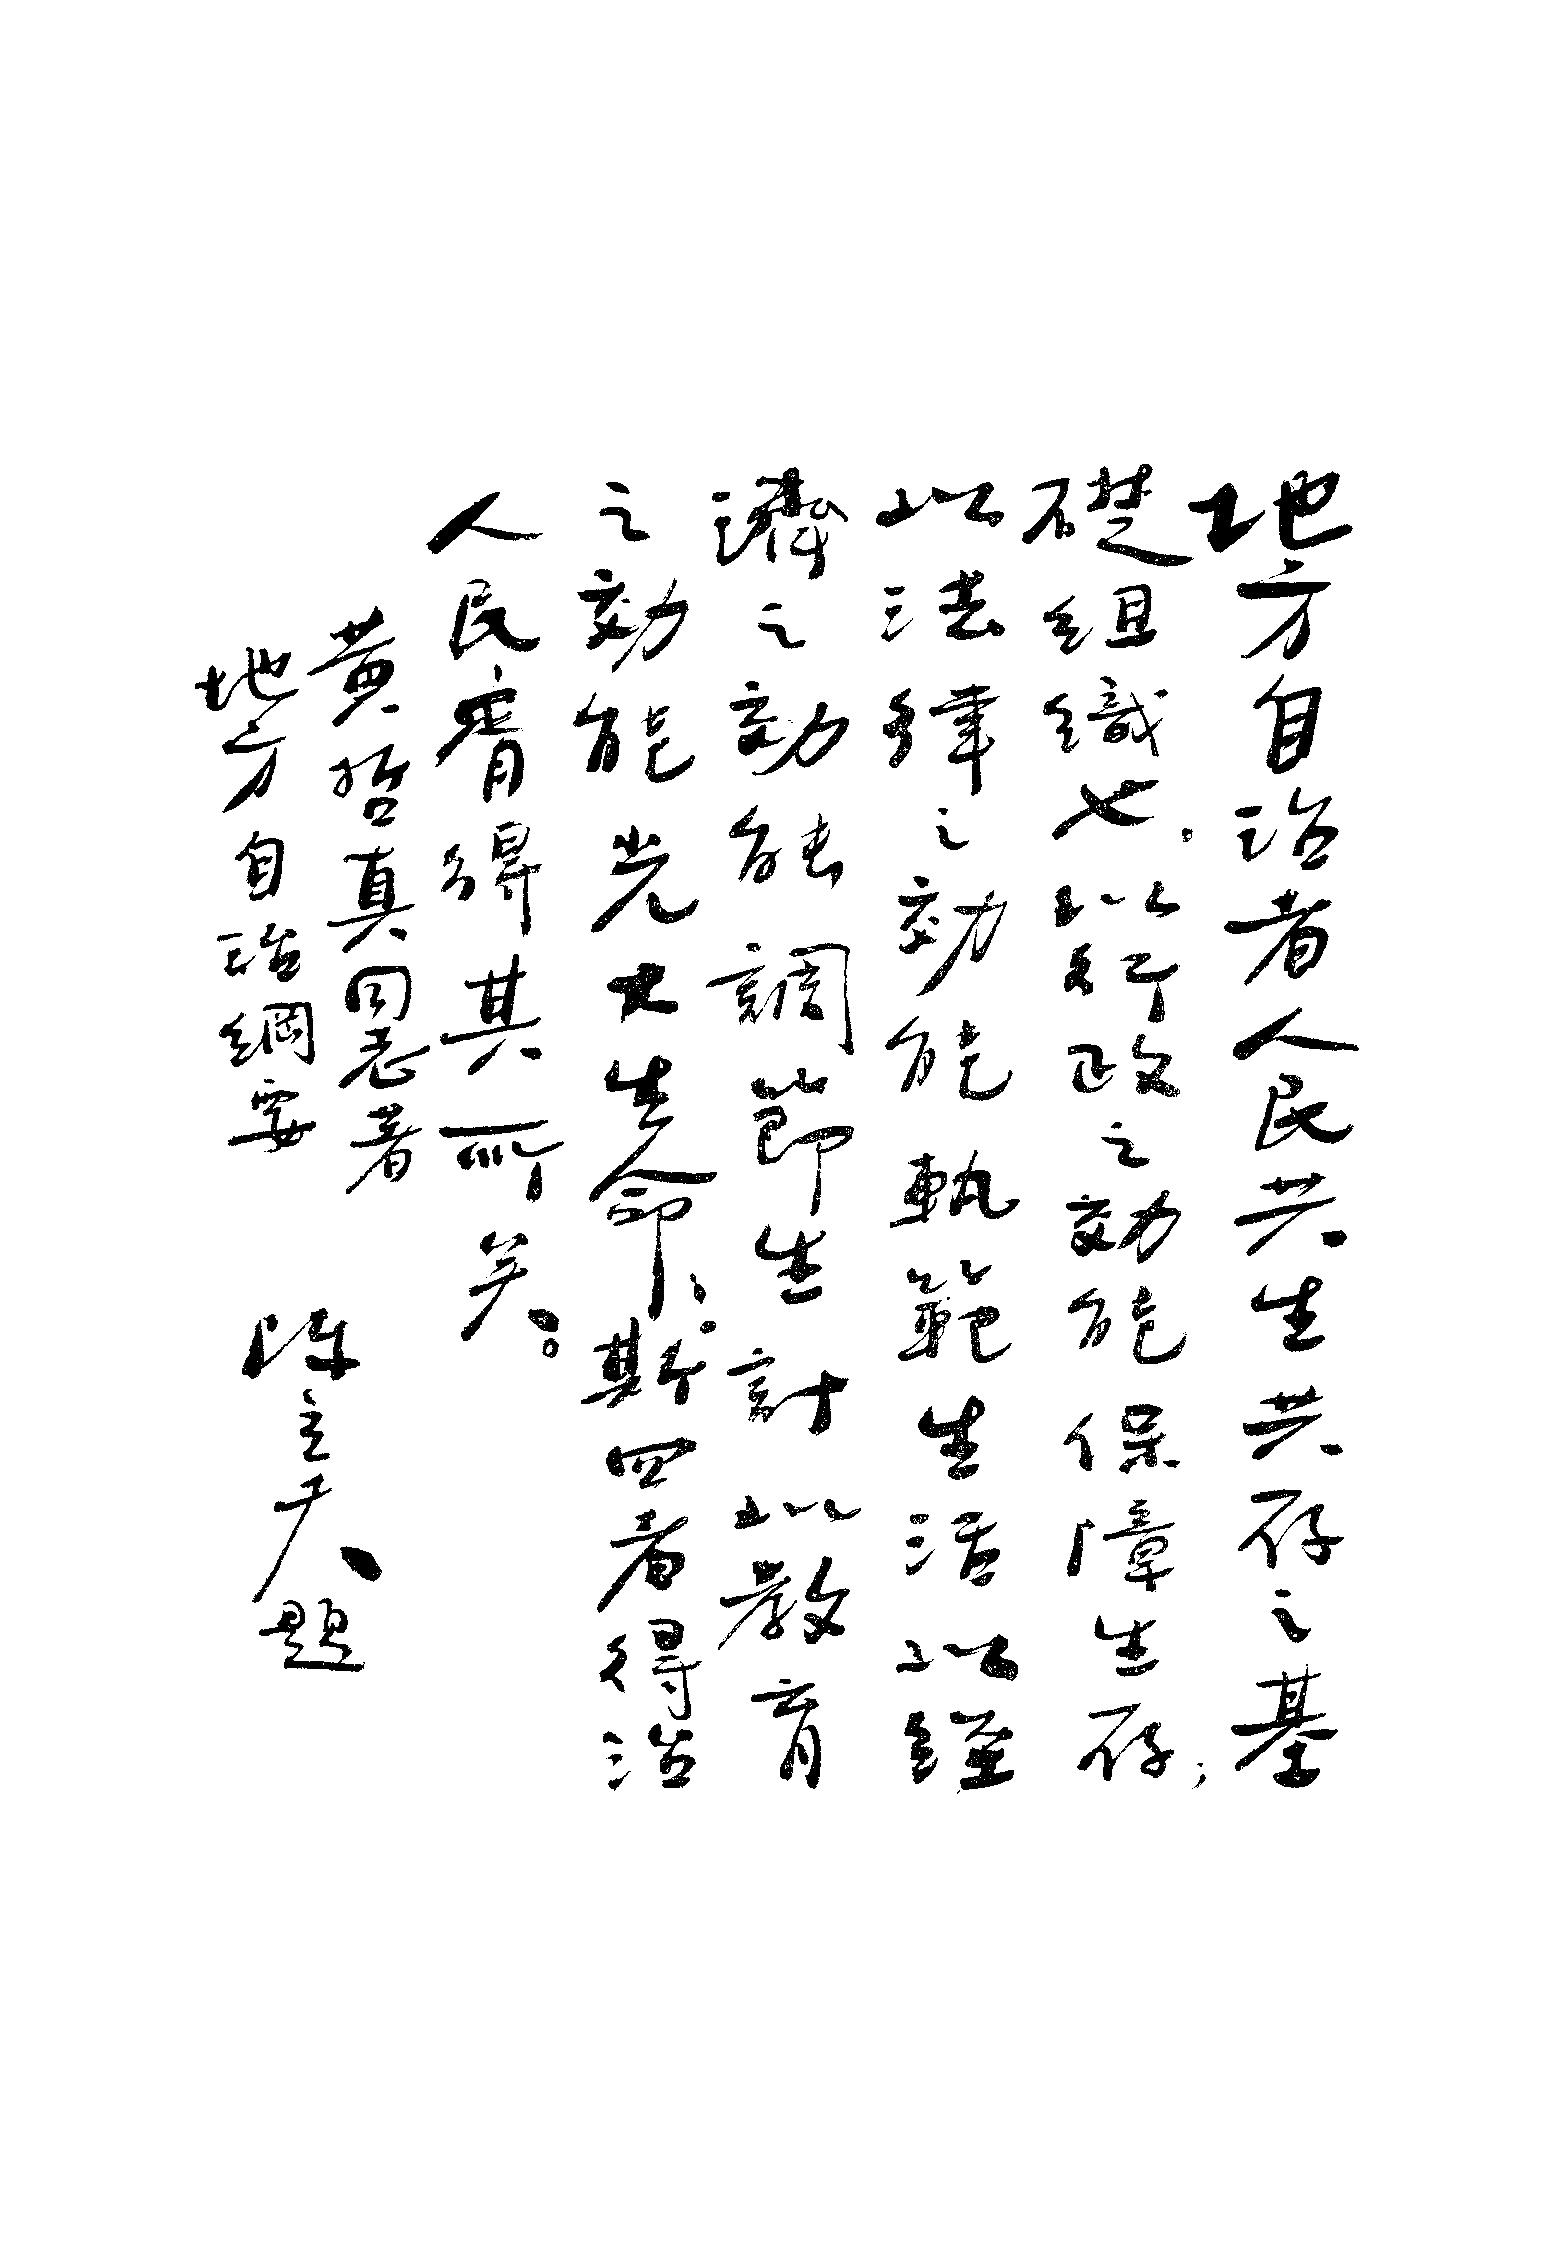 地方自治者人民共生共存之基
礎組織也，以行政之効能保障生存；
以法律之効能軌範生活以經
濟之効能調節生計以教育
之効能光大生命；斯四者得治
人民胥得其所矣。
黃哲真同志著
地方自治綱要
陳立夫題